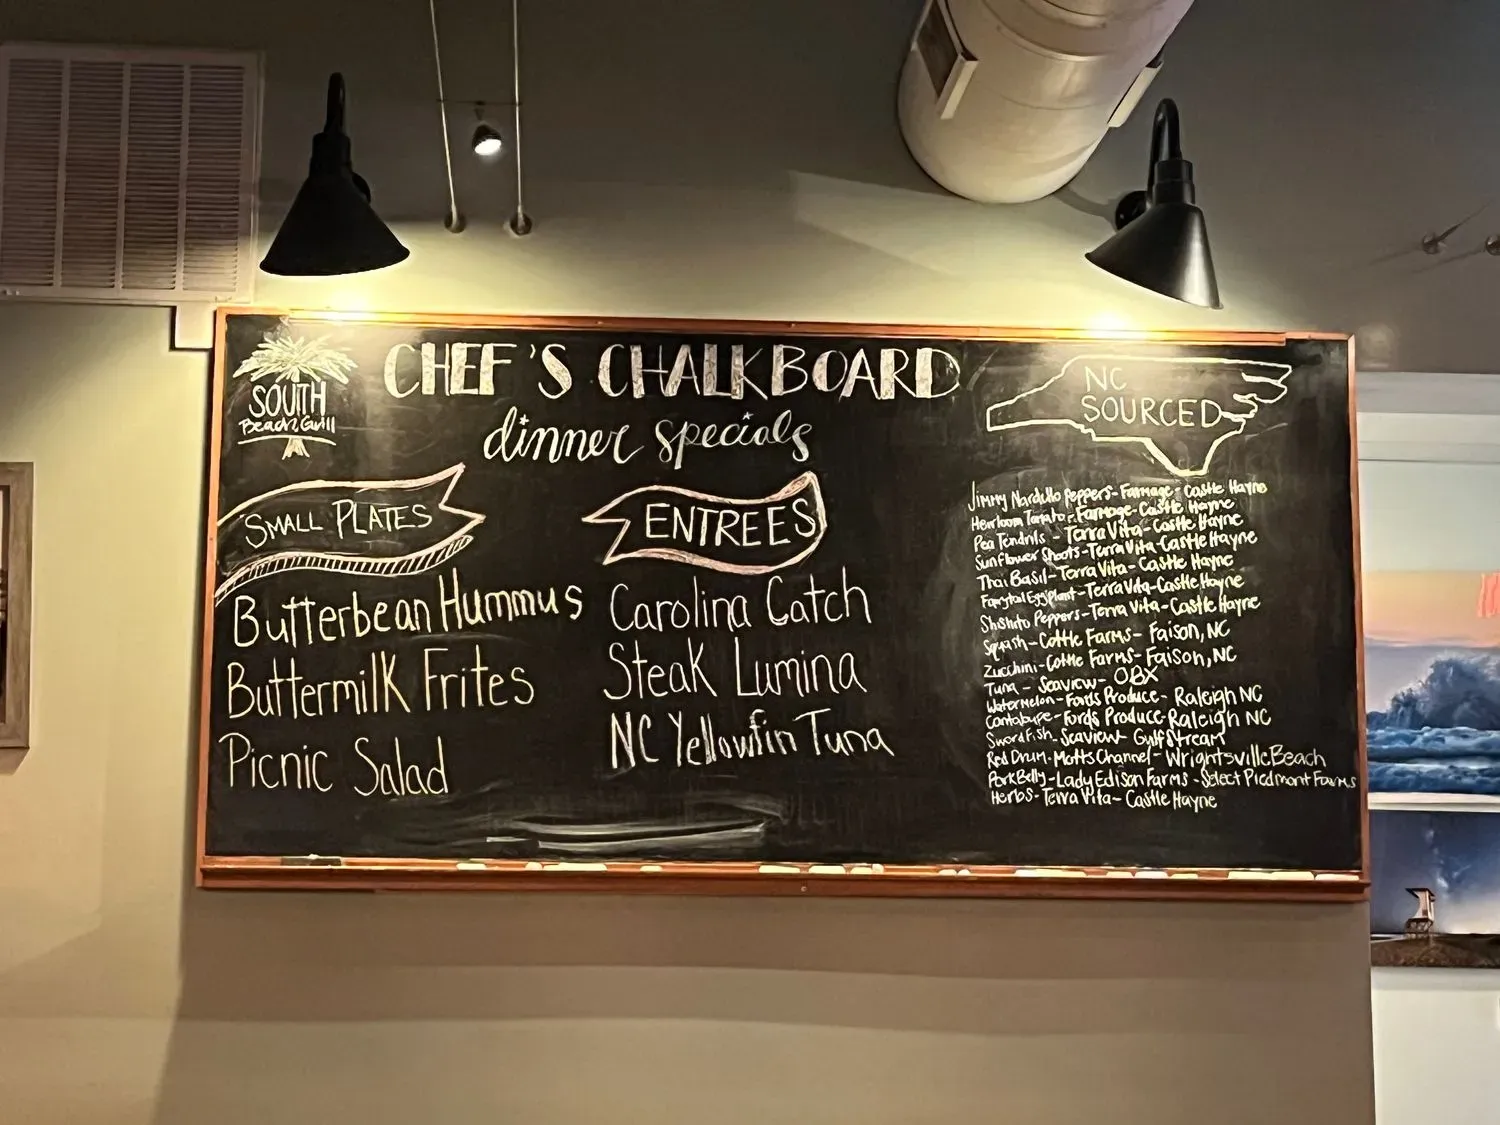 SOUTH
Beach Grill
CHEF'S CHALKBOARD
dinner specials
SMALL PLATES
Butterbean Hummus
Buttermilk Frites
Picnic Salad
ENTREES
Carolina Catch
Steak Lumina
NC Yellowfin Tuna
NC
SOURCED
Jimmy Nardello Peppers- Farmage- Castle Hayne
Heirloom Tomato- Farmage- Castle Hayne
Pea Tendrils - Terra Vita- Castle Hayne
Sunflower Shoots- Terra Vita- Castle Hayne
Thai Basil- Terra Vita- Castle Hayne
Fairytail Eggplant- Terra Vita- Castle Hayne
Shishito Peppers- Terra Vita- Castle Hayne
Squash- Cottle Farms- Faison, NC
Zucchini- Cottle Farms- Faison, NC
Tuna - Seaview- OBX
Watermelon- Fords Produce- Raleigh NC
Cantaloupe- Fords Produce- Raleigh NC
Swordfish- Seaview- Gulf Stream
Red Drum- Motts Channel- Wrightsville Beach
Pork Belly- Lady Edison Farms - Select Piedmont Farms
Herbs- Terra Vita- Castle Hayne